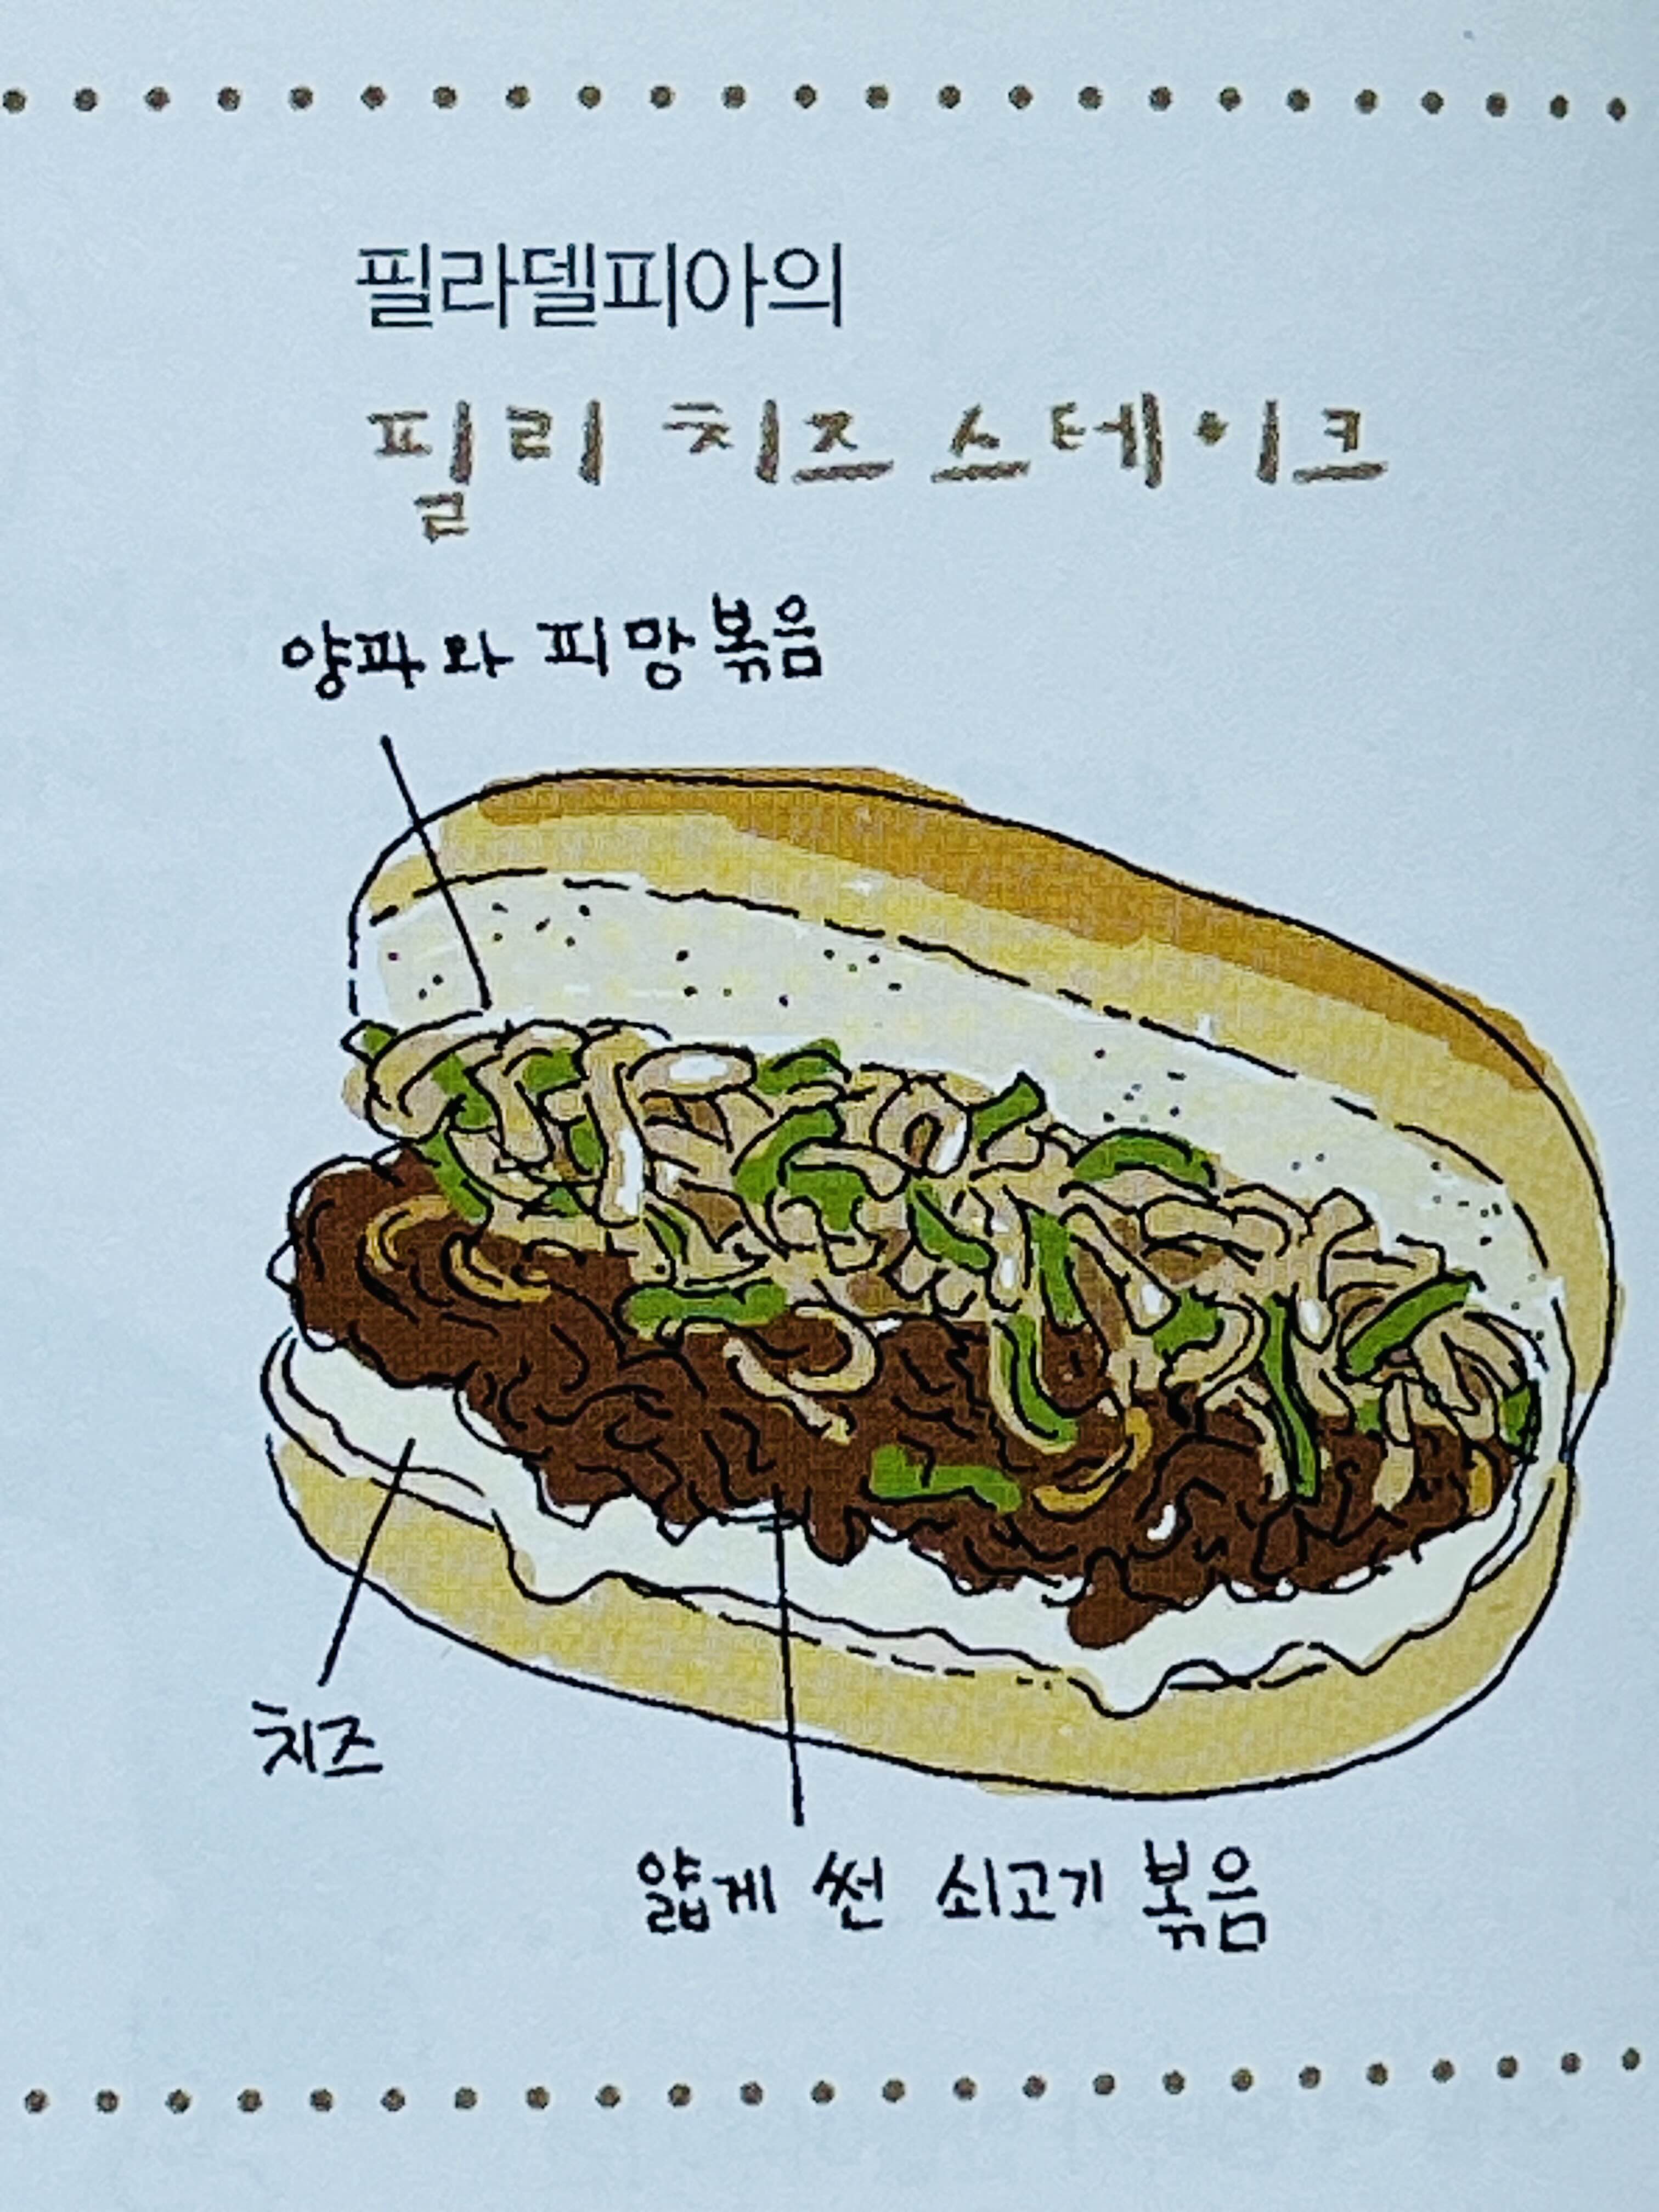 필라델피아의
필리 치즈 스테이크
양파와 피망볶음
치즈
얇게 썬 쇠고기 볶음